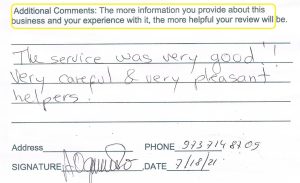 Additional Comments: The more information you provide about this
business and your experience with it, the more helpful your review will be.
The service was very good!!
Very careful & very pleasant
helpers.
Address PHONE 973 714 8705
SIGNATURE: DATE 7/18/21